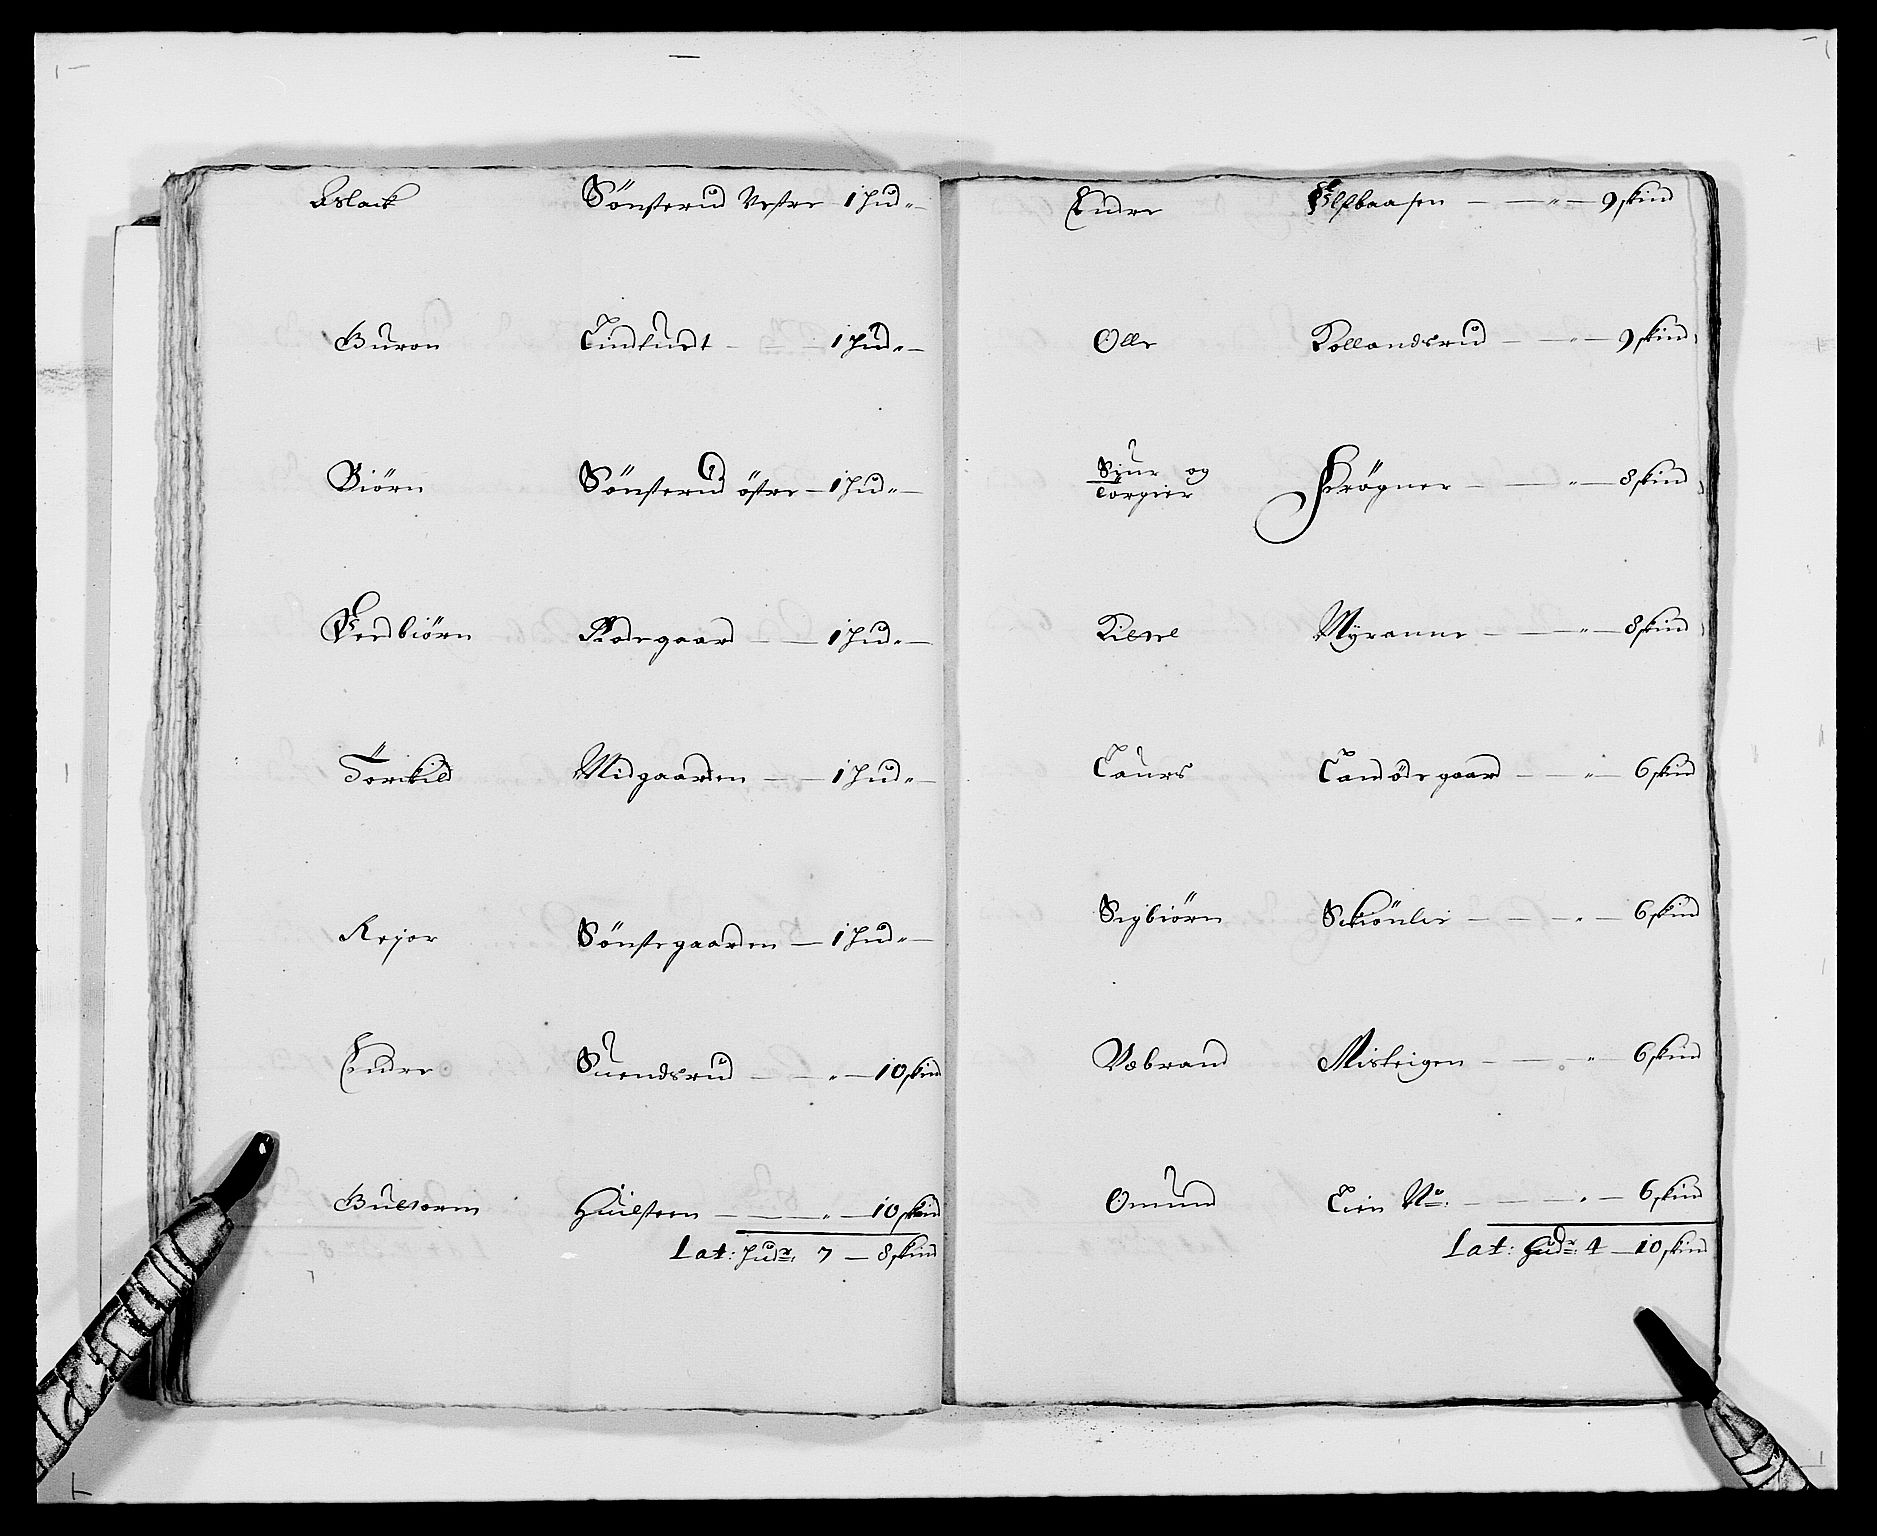 Aslack Sönsterud Vestre 1 hud "
Guron Lindtuedt 1 hud "
Biörn Sönsterud östre 1 hud "
Herbiörn Rodegaard 1 hud "
Torckild Midgaarden 1 hud "
Rejor Sönstegaarden 1 hud "
Endre Suendsrud " 10 skind
Gultorm Huilsteen " 10 skind
Lat: hudr: 7 8 skind
Endre Elffbaasen " 9 skind
Olle Rollandsrud " 9 skind
Sjur og
Torgier Frögner " 8 skind
Kittel Myranne " 8 skind
Laurs Landödegaard " 6 skind
Sigbiörn Schiönlie " 6 skind
Vebrand Misteigen " 6 skind
Omund Lien No: " 6 skind
Lat: hudr: 4 10 skind